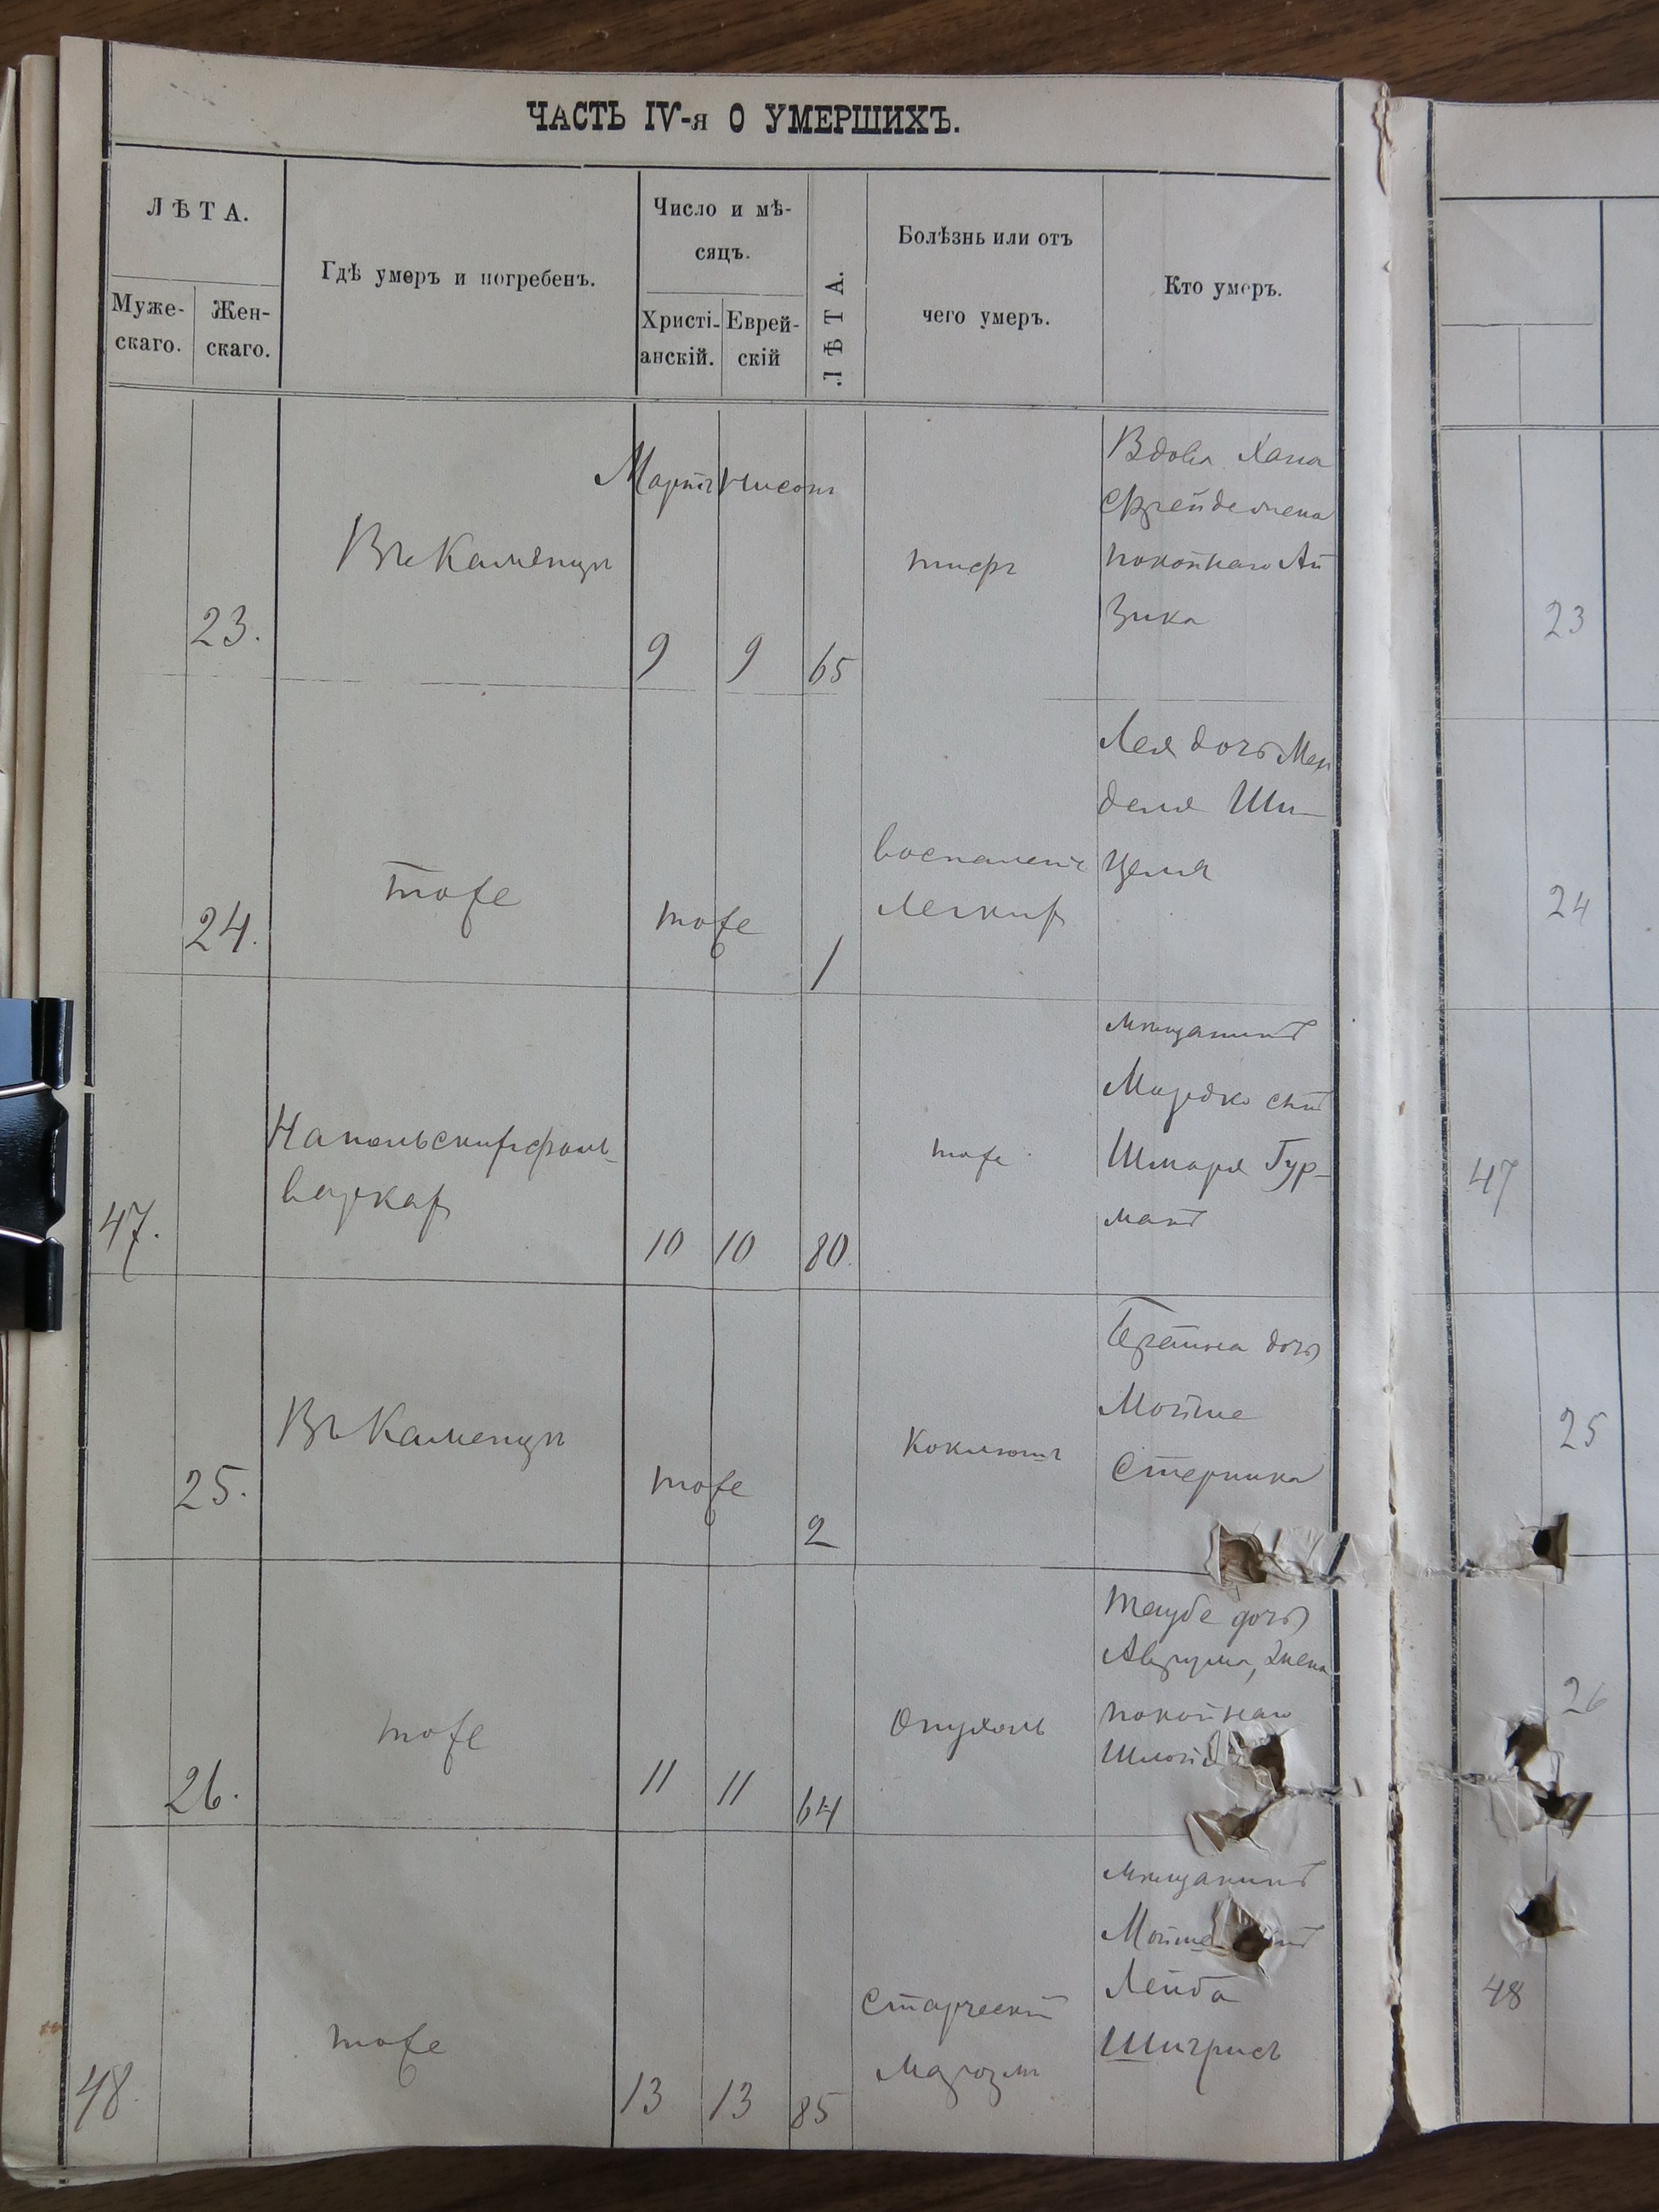 ЧАСТЬ IV-я О УМЕРШИХЪ.
ЛѢТА.
Муже-
скаго.
Жен-
скаго.
Гдѣ умеръ и погребенъ.
Число и мѣ-
сяцъ.
Христі-
анскій.
Еврей-
скій
ЛѢТА.
Болѣзнь или отъ
чего умеръ.
Кто умеръ.
Мартъ Нисонъ
23.
Въ Каменцѣ
9 9 65
тифъ
Вдова Хана
покойнаго Ай
зика
23
24.
тоже
тоже
1
воспаленіе
легкихъ
Лея дочь Мен
деля Ши-
целя
24
47.
На польскихъ фоль-
варкахъ
10 10 80.
тоже
мѣщанинъ
Мордко сынъ
Шмаря Гур-
манъ
47
25.
Въ Каменцѣ
тоже
2
Коклюшъ
дочь
Мойше
Стерника
25
26.
тоже
11 11 64
Опухоль
Таубе дочь
Аврума, жена
покойнаго
26
48.
тоже
13 13 85
Старческій
маразмъ
мѣщанинъ
Мойше
Лейба
48